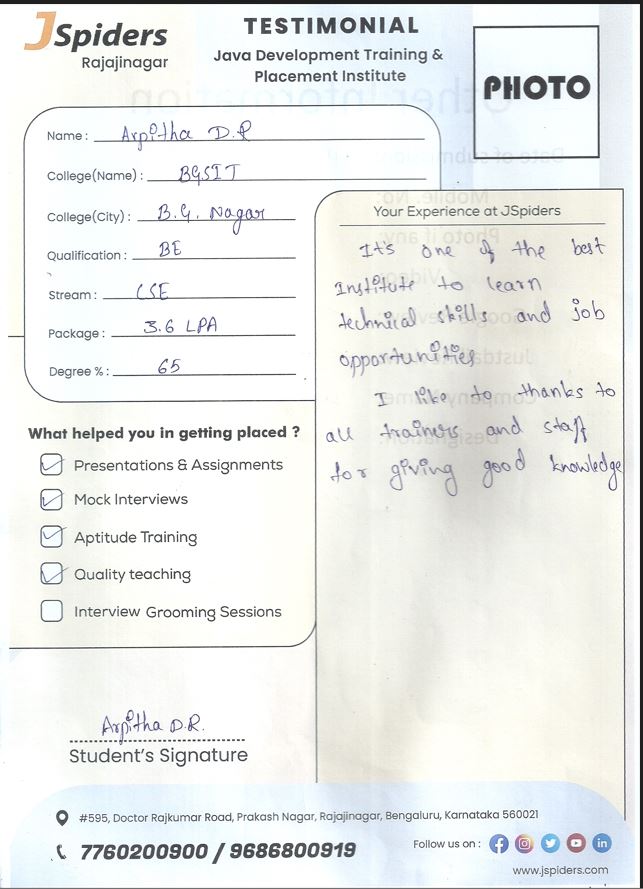 JSpiders
Rajajinagar
TESTIMONIAL
Java Development Training &
Placement Institute
PHOTO
Name : Arpitha D.R
College(Name) : BGSIT
College(City) : B.G. Nagar
Qualification : BE
Stream : CSE
Package : 3.6 LPA
Degree % : 65
What helped you in getting placed ?
Presentations & Assignments
Mock Interviews
Aptitude Training
Quality teaching
Interview Grooming Sessions
Your Experience at JSpiders
It's one of the best
Institute to learn
technical skills and job
opportunities
I like to thanks to
all trainers and staff
for giving good knowledge
Arpitha D.R.
Student's Signature
#595, Doctor Rajkumar Road, Prakash Nagar, Rajajinagar, Bengaluru, Karnataka 560021
7760200900 / 9686800919
Follow us on :
www.jspiders.com